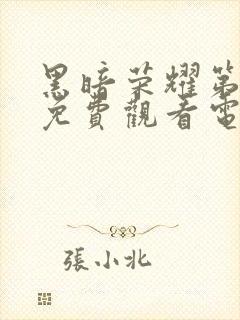 黑暗荣耀第
免費觀看電
張小北